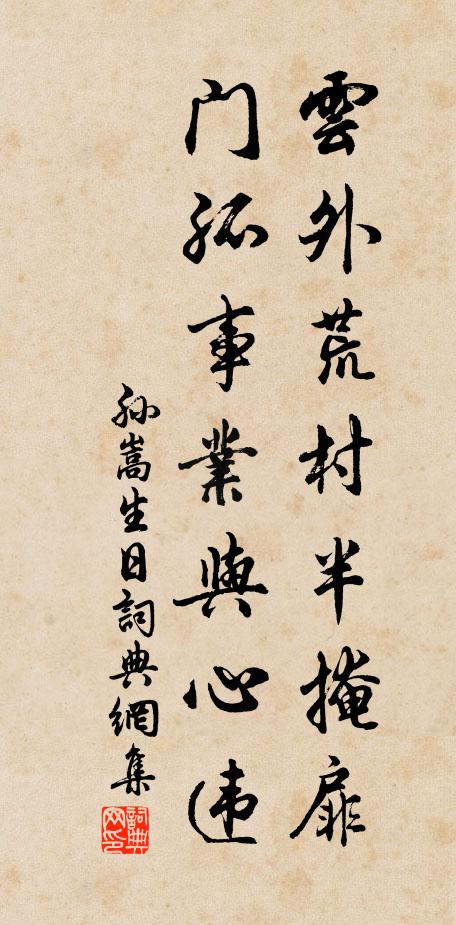 雲外荒村半掩扉
门孤事業與心违
孙嵩生日詞典網集
詞典网印